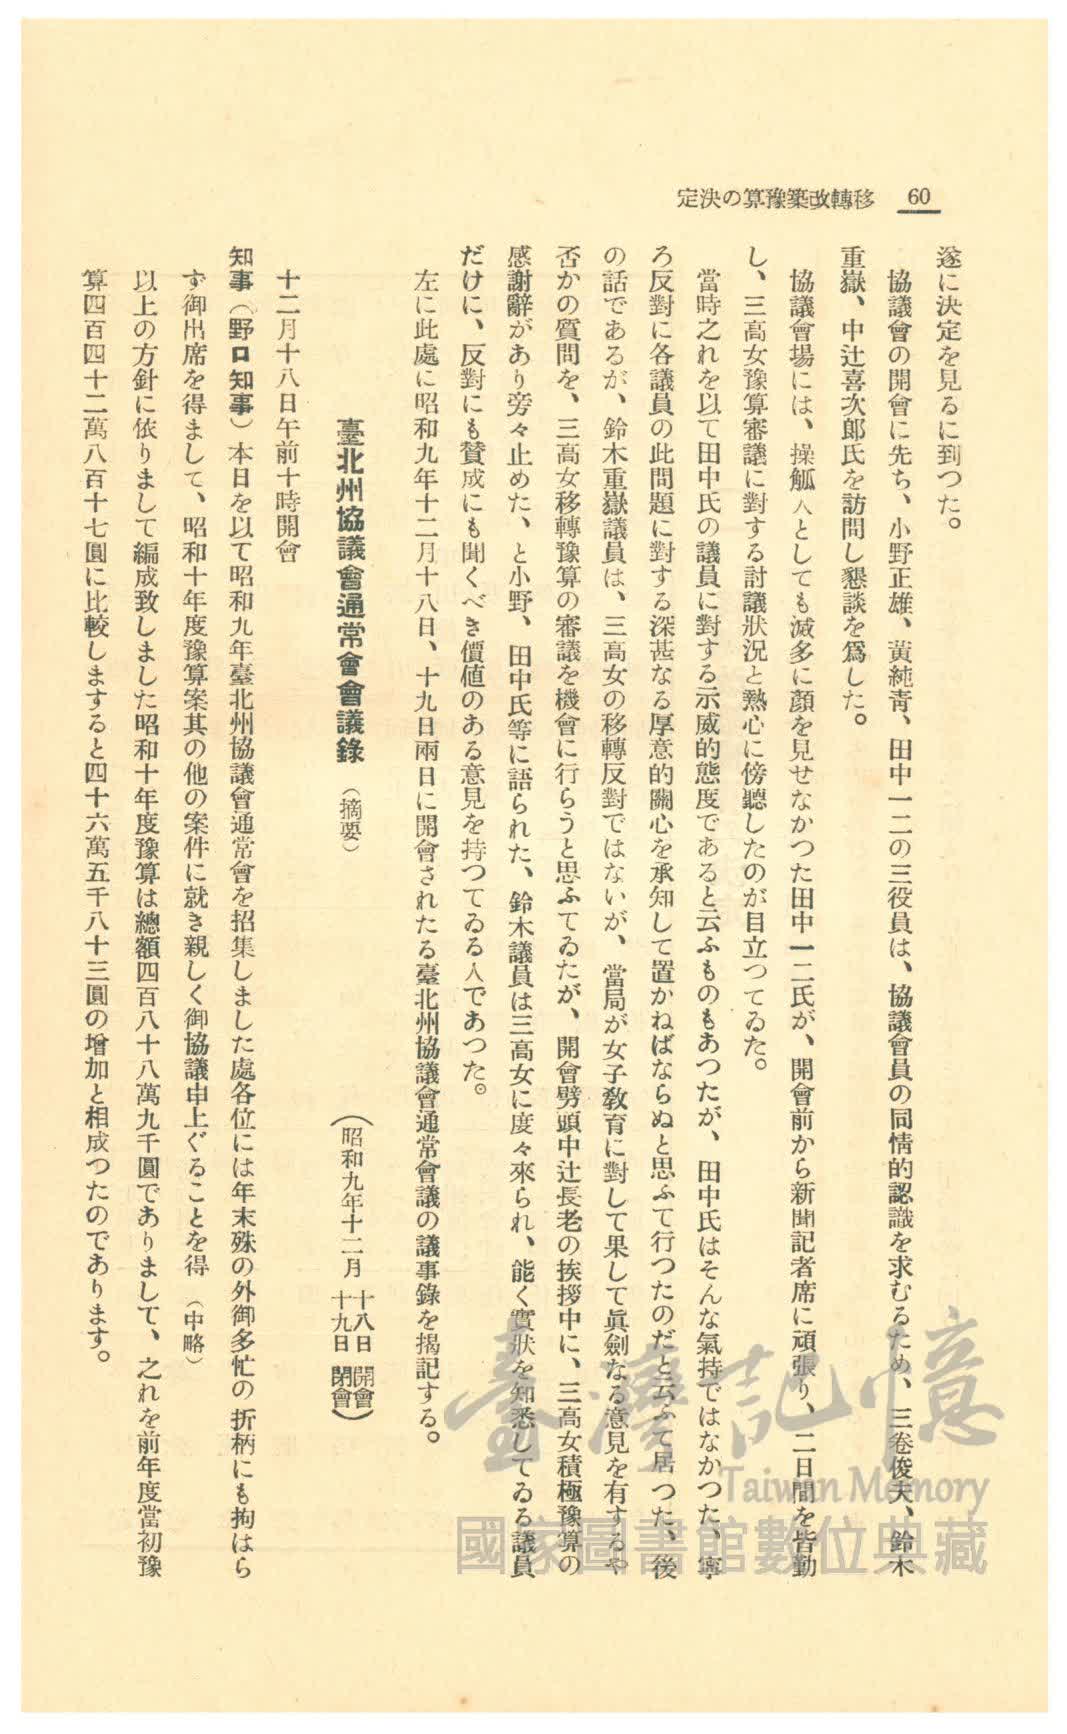 60
定決の算豫築改轉移
遂に決定を見るに到つた。
協議會の開會に先ち、小野正雄、黃純靑、田中一二の三役員は、協議會員の同情的認識を求むるため、三卷俊夫、鈴木
重嶽、中辻喜次郎氏を訪問し懇談を爲した。
協議會場には、操觚人としても滅多に顏を見せなかつた田中一二氏が、開會前から新聞記者席に頑張り、二日間を皆勤
し、三高女豫算審議に對する討議狀況と熱心に傍聽したのが目立つてゐた。
當時之れを以て田中氏の議員に對する示威的態度であると云ふものもあつたが、田中氏はそんな氣持ではなかつた、寧
ろ反對に各議員の此問題に對する深甚なる厚意的關心を承知して置かねばならぬと思ふて行つたのだと云ふて居つた、後
の話であるが、鈴木重嶽議員は、三高女の移轉反對ではないが、當局が女子敎育に對して果して眞劍なる意見を有するや
否かの質問を、三高女移轉豫算の審議を機會に行らうと思ふてゐたが、開會劈頭中辻長老の挨拶中に、三高女積極豫算の
感謝辭があり旁々止めた、と小野、田中氏等に語られた、鈴木議員は三高女に度々來られ、能く實狀を知悉してゐる議員
だけに、反對にも贊成にも聞くべき價値のある意見を持つてゐる人であつた。
左に此處に昭和九年十二月十八日、十九日兩日に開會されたる臺北州協議會通常會議の議事錄を揭記する。
臺北州協議會通常會會議錄（摘要）
（昭和九年十二月 十八日 開會
十九日 閉會）
十二月十八日午前十時開會
知事（野口知事）本日を以て昭和九年臺北州協議會通常會を招集しました處各位には年末殊の外御多忙の折柄にも拘はら
ず御出席を得まして、昭和十年度豫算案其の他の案件に就き親しく御協議申上ぐることを得（中略）
以上の方針に依りまして編成致しました昭和十年度豫算は總額四百八十八萬九千圓でありまして、之れを前年度當初豫
算四百四十二萬八百十七圓に比較しますると四十六萬五千八十三圓の增加と相成つたのであります。
臺灣記憶
Taiwan Memory
國家圖書館數位典藏